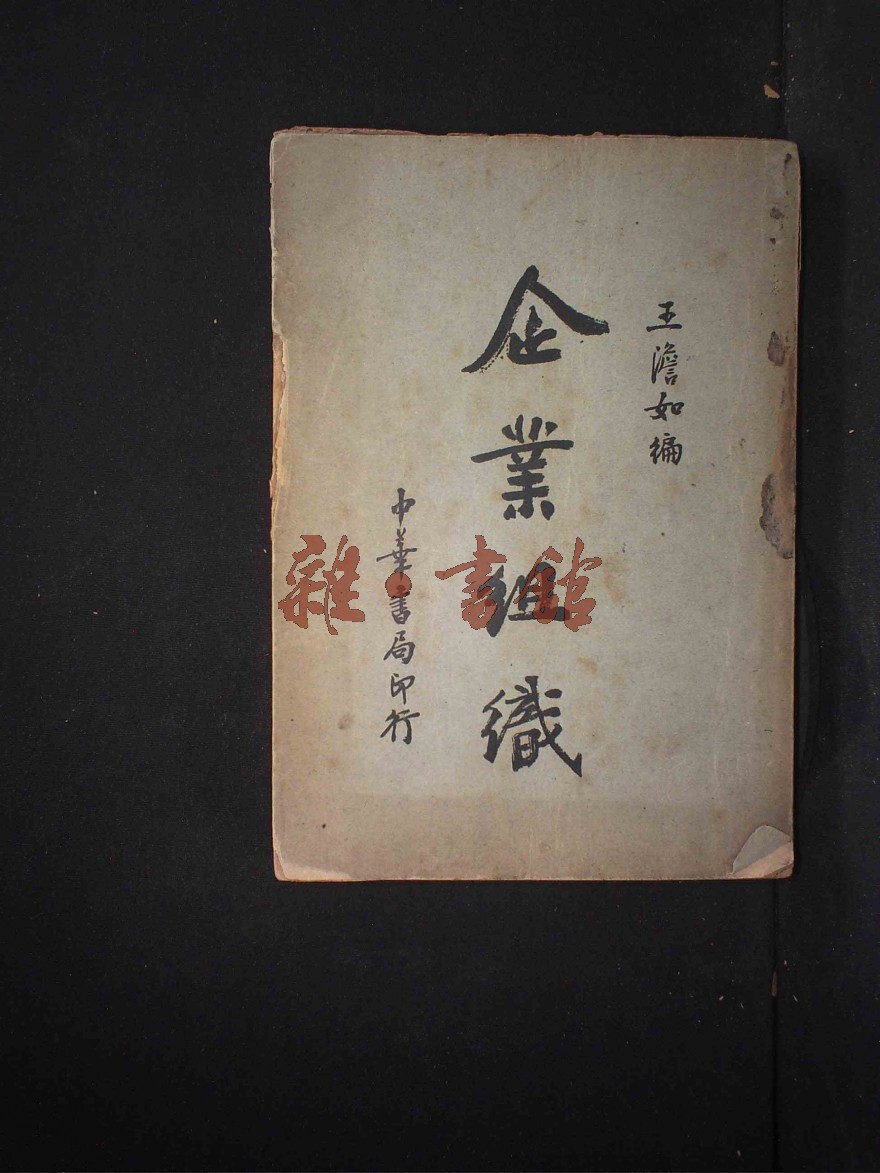 王澹如編
企業組織
中華書局印行
雜·書館